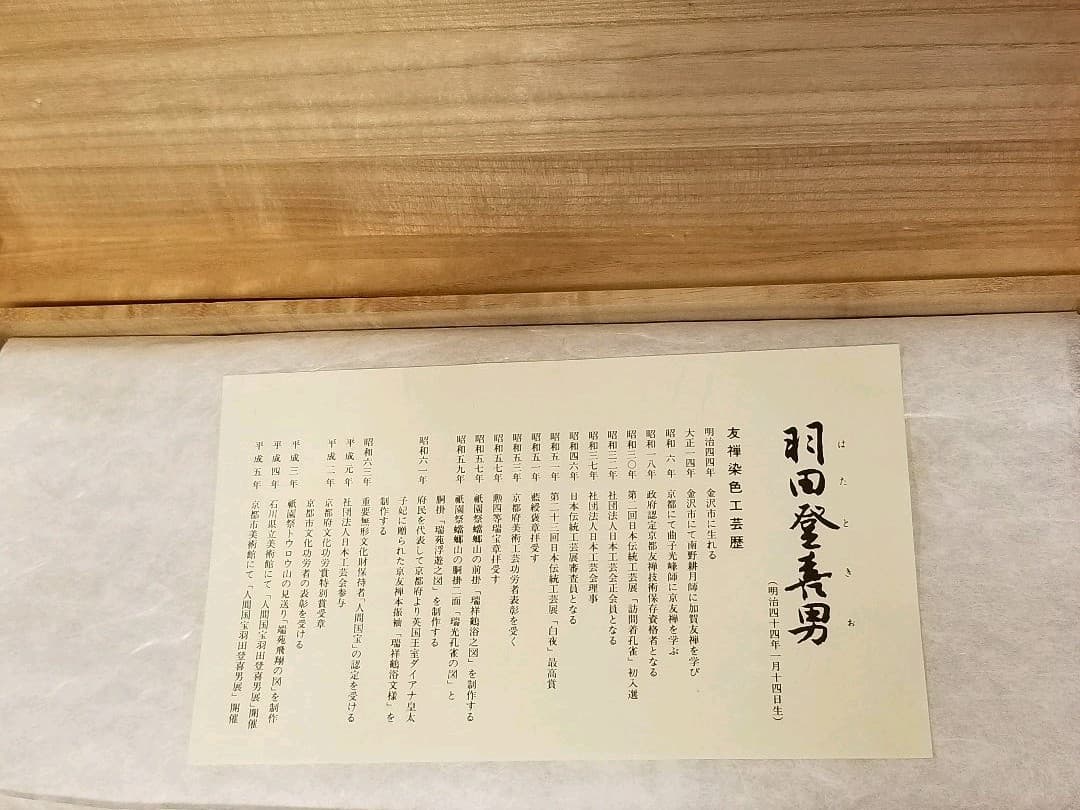 羽田登喜男
はたときお
（明治四十四年一月十四日生）
友禅染色工芸歴
明治四四年　金沢市に生れる
大正一四年　金沢市にて南野耕月師に加賀友禅を学び
昭和　六年　京都にて曲子光峰師に京友禅を学ぶ
昭和一八年　政府認定京都友禅技術保存資格者となる
昭和三〇年　第二回日本伝統工芸展「訪問着孔雀」初入選
昭和三二年　社団法人日本工芸会正会員となる
昭和三七年　社団法人日本工芸会理事
昭和四六年　日本伝統工芸展審査員となる
昭和五一年　第二十三回日本伝統工芸展「白夜」最高賞
昭和五一年　藍綬褒章拝受す
昭和五三年　京都府美術工芸功労者表彰を受く
昭和五七年　勲四等瑞宝章拝受す
昭和五七年　祇園祭蟷螂山の前掛「瑞祥鶴浴之図」を制作する
昭和五九年　祇園祭蟷螂山の胴掛二面「瑞光孔雀の図」と
胴掛「瑞苑浮遊之図」を制作する
昭和六一年　府民を代表して京都府より英国王室ダイアナ皇太
子妃に贈られた京友禅本振袖「瑞祥鶴浴文様」を
制作する
昭和六三年　重要無形文化財保持者「人間国宝」の認定を受ける
平成元年　社団法人日本工芸会参与
平成二年　京都府文化功労賞特別賞受章
京都市文化功労者の表彰を受ける
平成三年　祇園祭トウロウ山の見送り「瑞苑飛翔の図」を制作
平成四年　石川県立美術館にて「人間国宝羽田登喜男展」開催
平成五年　京都市美術館にて「人間国宝羽田登喜男展」開催